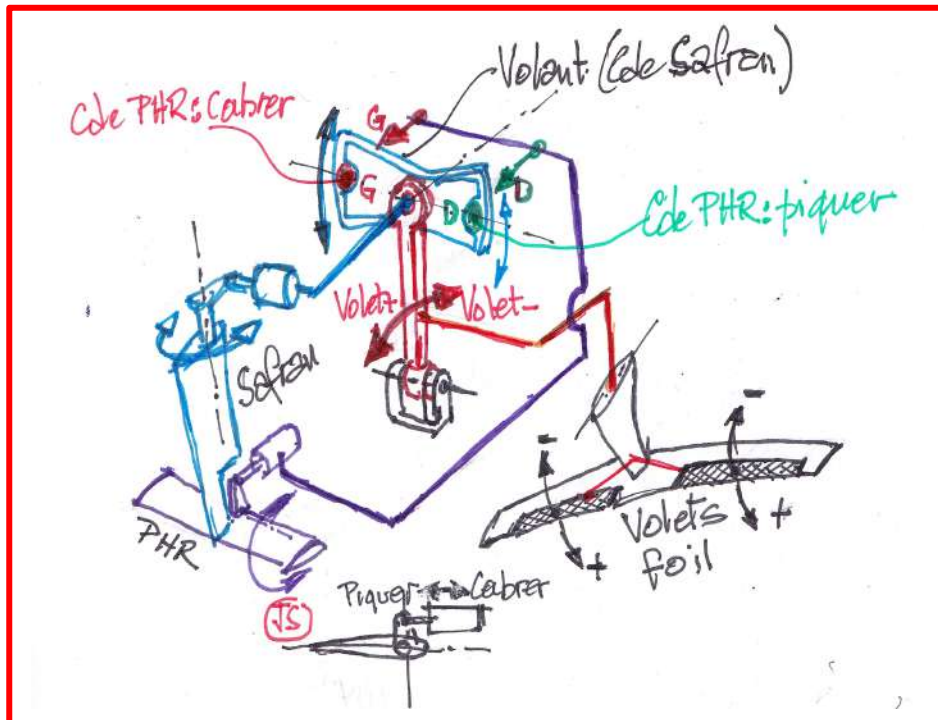 Volant (Cde Safran)
Cde PHR: Cabrer
G
G
D
D
Cde PHR: piquer
Volet+
Volet-
Safran
PHR
-
-
+
+
Volets
foil
Piquer
Cabrer
JS